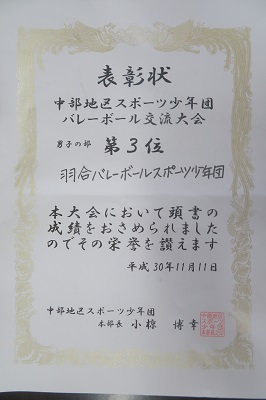 表彰状
中部地区スポーツ少年団
バレーボール交流大会
男子の部 第3位
羽合バレーボールスポーツ少年団
本大会において頭書の
成績をおさめられました
のでその栄誉を讃えます
平成30年11月11日
中部地区スポーツ少年団
本部長 小椋 博幸